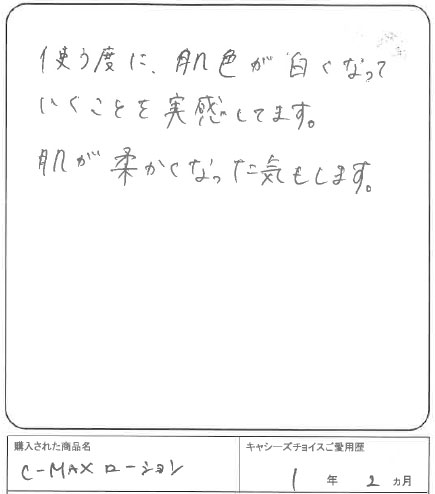 使う度に、肌色が白くなって
いくことを実感してます。
肌が柔かくなった気もします。
購入された商品名
C-MAX ローション
キャシーズチョイスご愛用歴
1 年 2 ヵ月